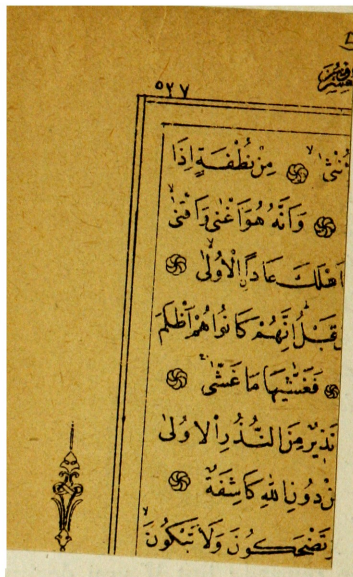 ٥٢٧
نُثٰىۙ ۞ مِنْ نُطْفَةٍ اِذَا
۞ وَاَنَّهُ هُوَ اَغْنٰى وَاَقْنٰىۙ
اَهْلَكَ عَادًاۨ الْاُولٰىۙ ۞
قَبْلُ اِنَّهُمْ كَانُوا هُمْ اَظْلَمَ
۞ فَغَشّٰيهَا مَا غَشّٰىۚ ۞
نَذِيرٌ مِنَ النُّذُرِ الْاُولٰى
نْ دُونِ اللّٰهِ كَاشِفَةٌ ۞
تَضْحَكُونَ وَلَا تَبْكُونَۙ